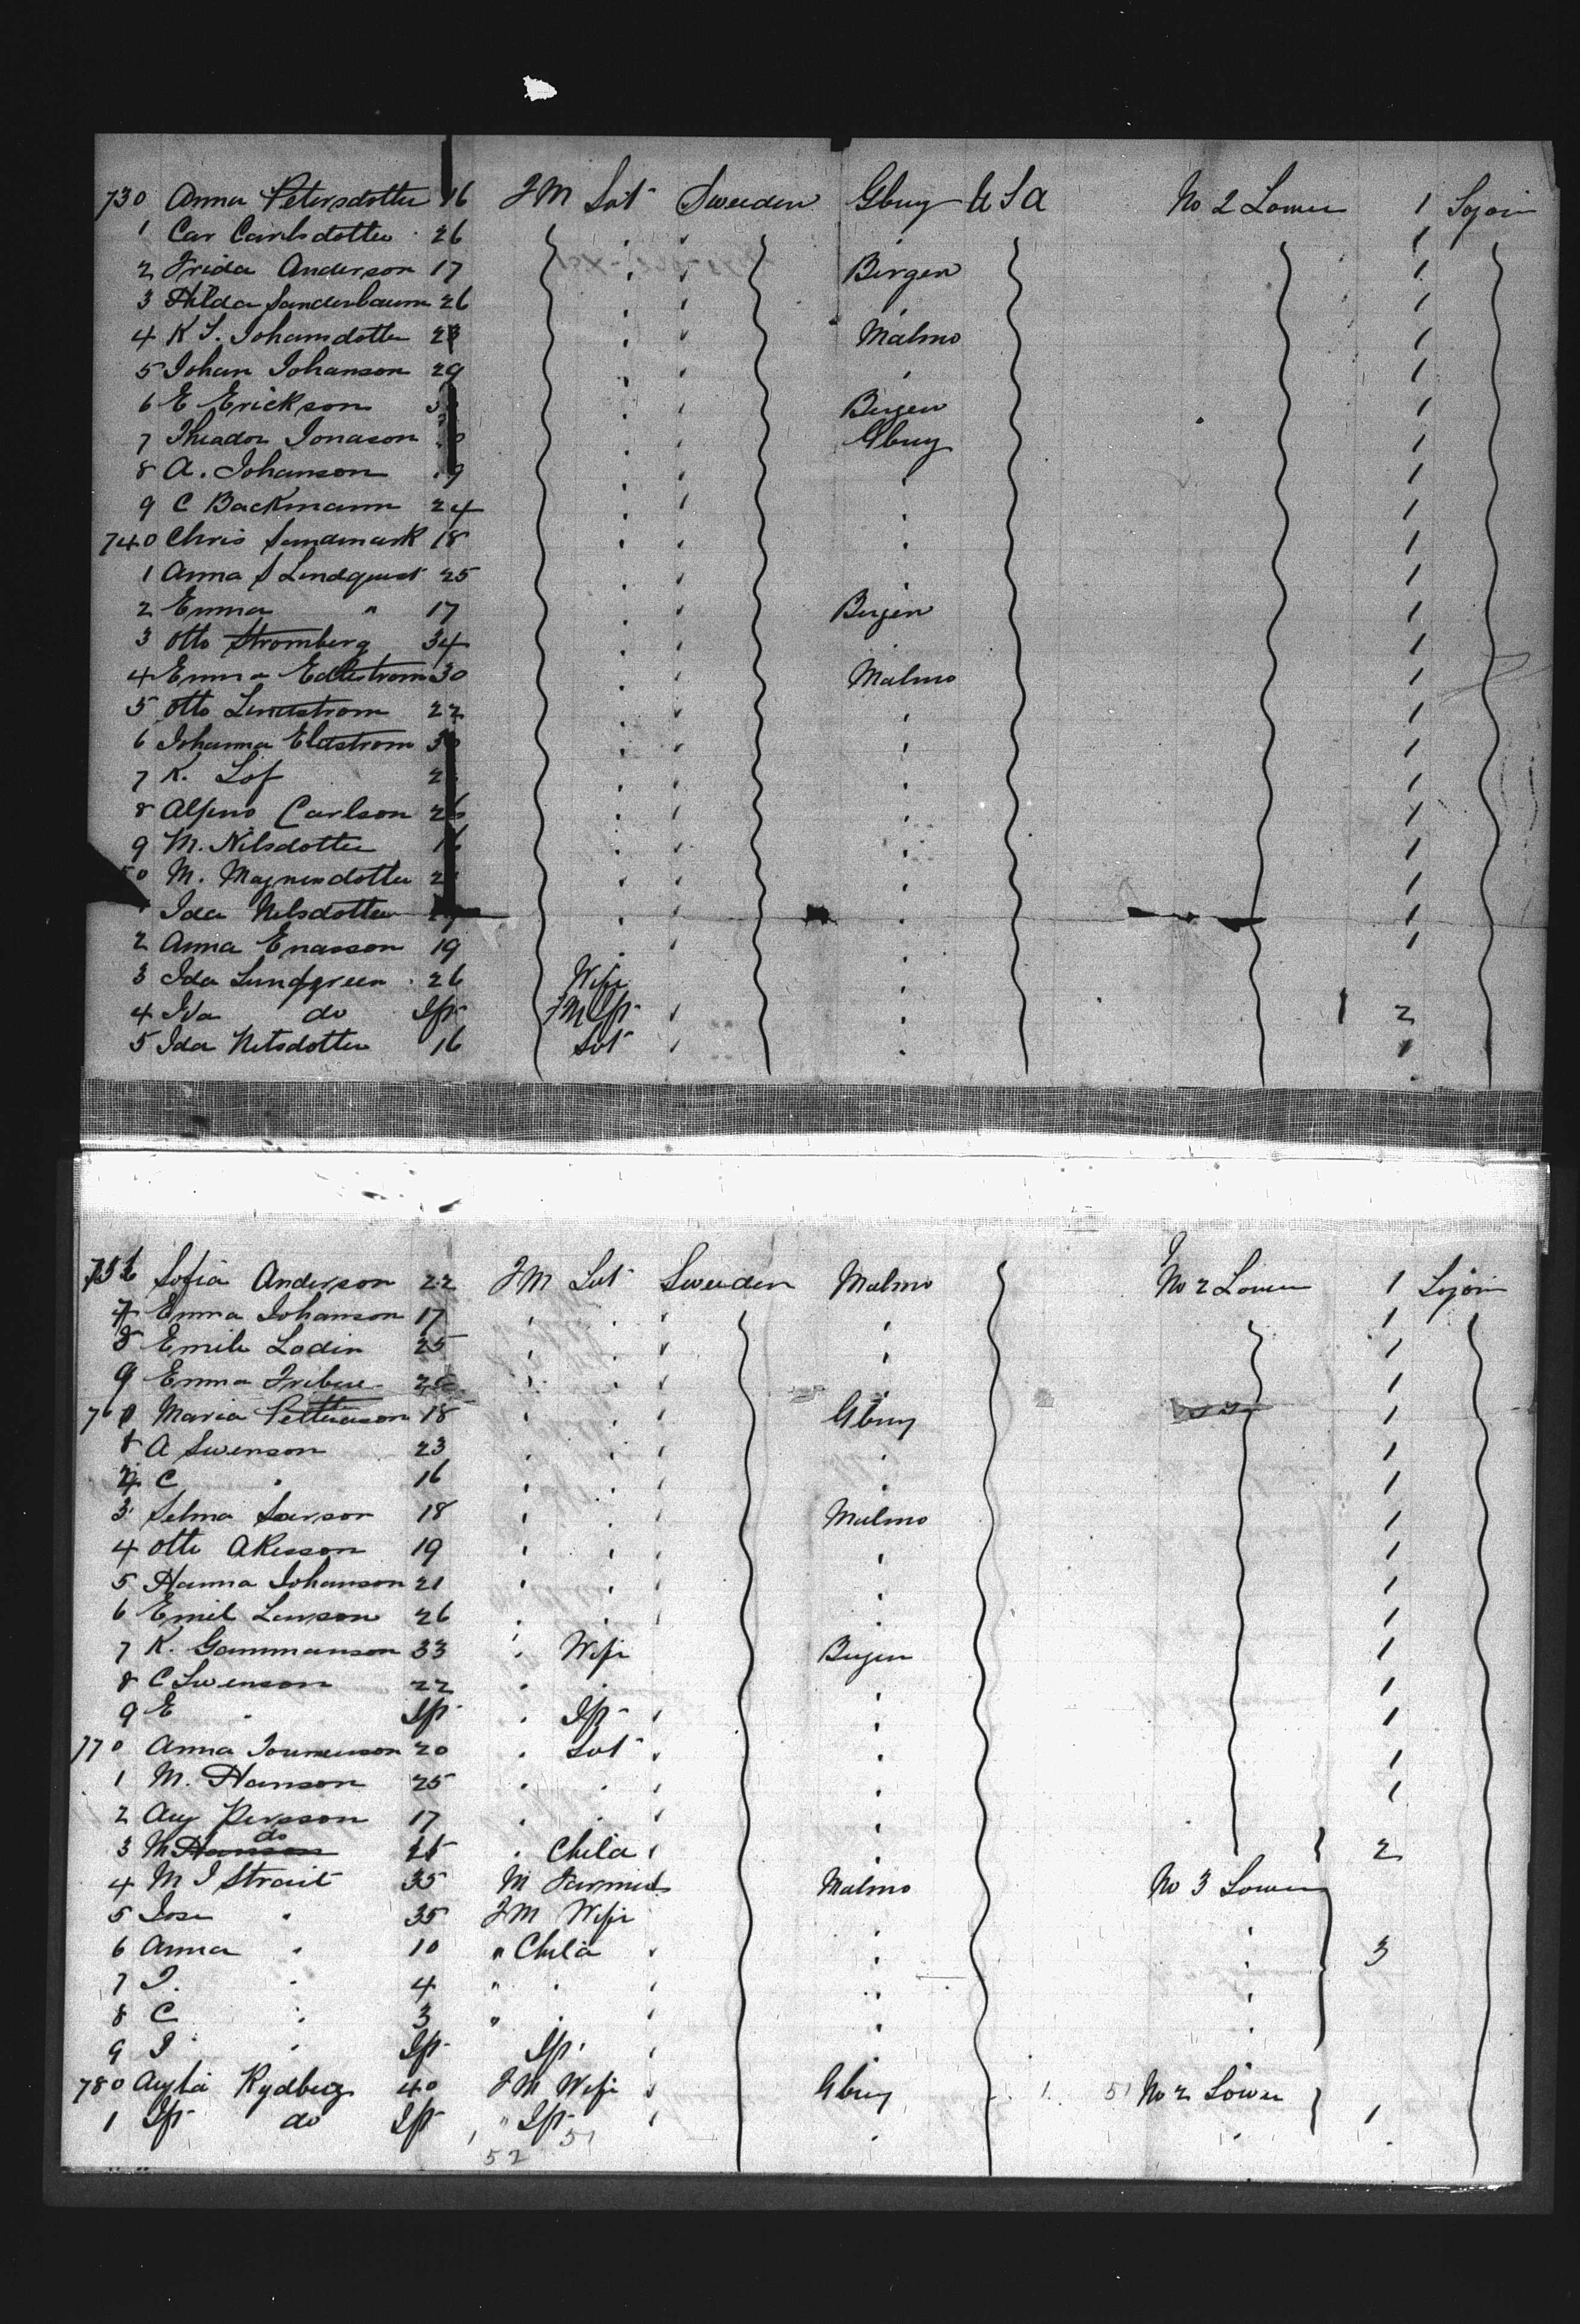 730 Anna Petersdotter 16 FM Sst Sweeden Gburg U S A No 2 Lower 1 Sojorn
1 Car Carlsdotter 26 " " 1
2 Frida Anderson 17 " " Birgen 1
3 Hilda Sanderbaum 26 " " " 1
4 K S. Johansdotter 23 " " Malmo 1
5 Johan Johanson 29 " " " 1
6 E Erickson " " Birgen 1
7 Theador Jonason " " Gburg 1
8 A. Johanson 19 " " " 1
9 C Backmann 24 " " " 1
740 Chris Sandmark 18 " " " 1
1 Anna S Lindquist 25 " " " 1
2 Emma " 17 " " Birgen 1
3 Otto Stromberg 34 " " 1
4 Emma Edlestrom 30 " " Malmo 1
5 Otto Lindstrom 22 " " " 1
6 Johanna Eldstrom " " " 1
7 K. Lof " " " 1
8 Carlson 26 " " " 1
9 M. Nilsdotter 16 " " " 1
50 M. Magnusdotter " " " 1
Ida Nelsdotter " " " 1
2 Anna Enasson 19 " " " 1
3 Ida Lundgreen 26 Wife "
4 Ida do Ift FM Ift " " 1 2
5 Ida Netsdotter 16 Sst " " 1
756 Sofia Anderson 22 FM Sst Sweeden Malmo No 2 Lower 1 Sojorn
7 Emma Johanson 17 " " " " 1
8 Emile Lodin 25 " " " " 1
9 Emma " " " " 1
760 Maria Petterason 18 " " " Gburg 1
A Swenson 23 " " " " 1
C " 16 " " " " 1
3 Selma Larson 18 " " " Malmo 1
4 Otto Akesson 19 " " " " 1
5 Hanna Johanson 21 " " " " 1
6 Emil Larson 26 " " " " 1
7 K. Gammanson 33 " Wife Birgen 1
8 C Swenson 22 " " " 1
9 E " Ift " Ift " " 1
770 Anna 20 " Sst " " 1
1 M. Hanson 25 " " " " 1
2 Aug Persson 17 " " " "
3 M Hanson do " Child " " 2
4 M J Strait 35 M Farmer Malmo No 3 Lower
5 " 35 FM Wife "
6 Anna " 10 " Child " " " 3
7 J. " 4 " " " " "
8 C " 3 " " " " "
9 J " Ift Ift " " "
780 Rydberg 40 FM Wife " Gburg 1 51 No 2 Lower
1 Ift do Ift " Ift " " " 1
1 52 51